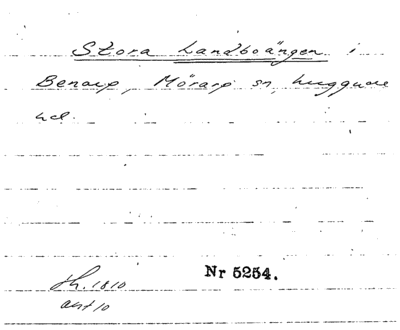 Stora Landboängen i
Benarp, Mörarp sn, Luggude
hd.
Nr 5254.
h. 1810
akt 10